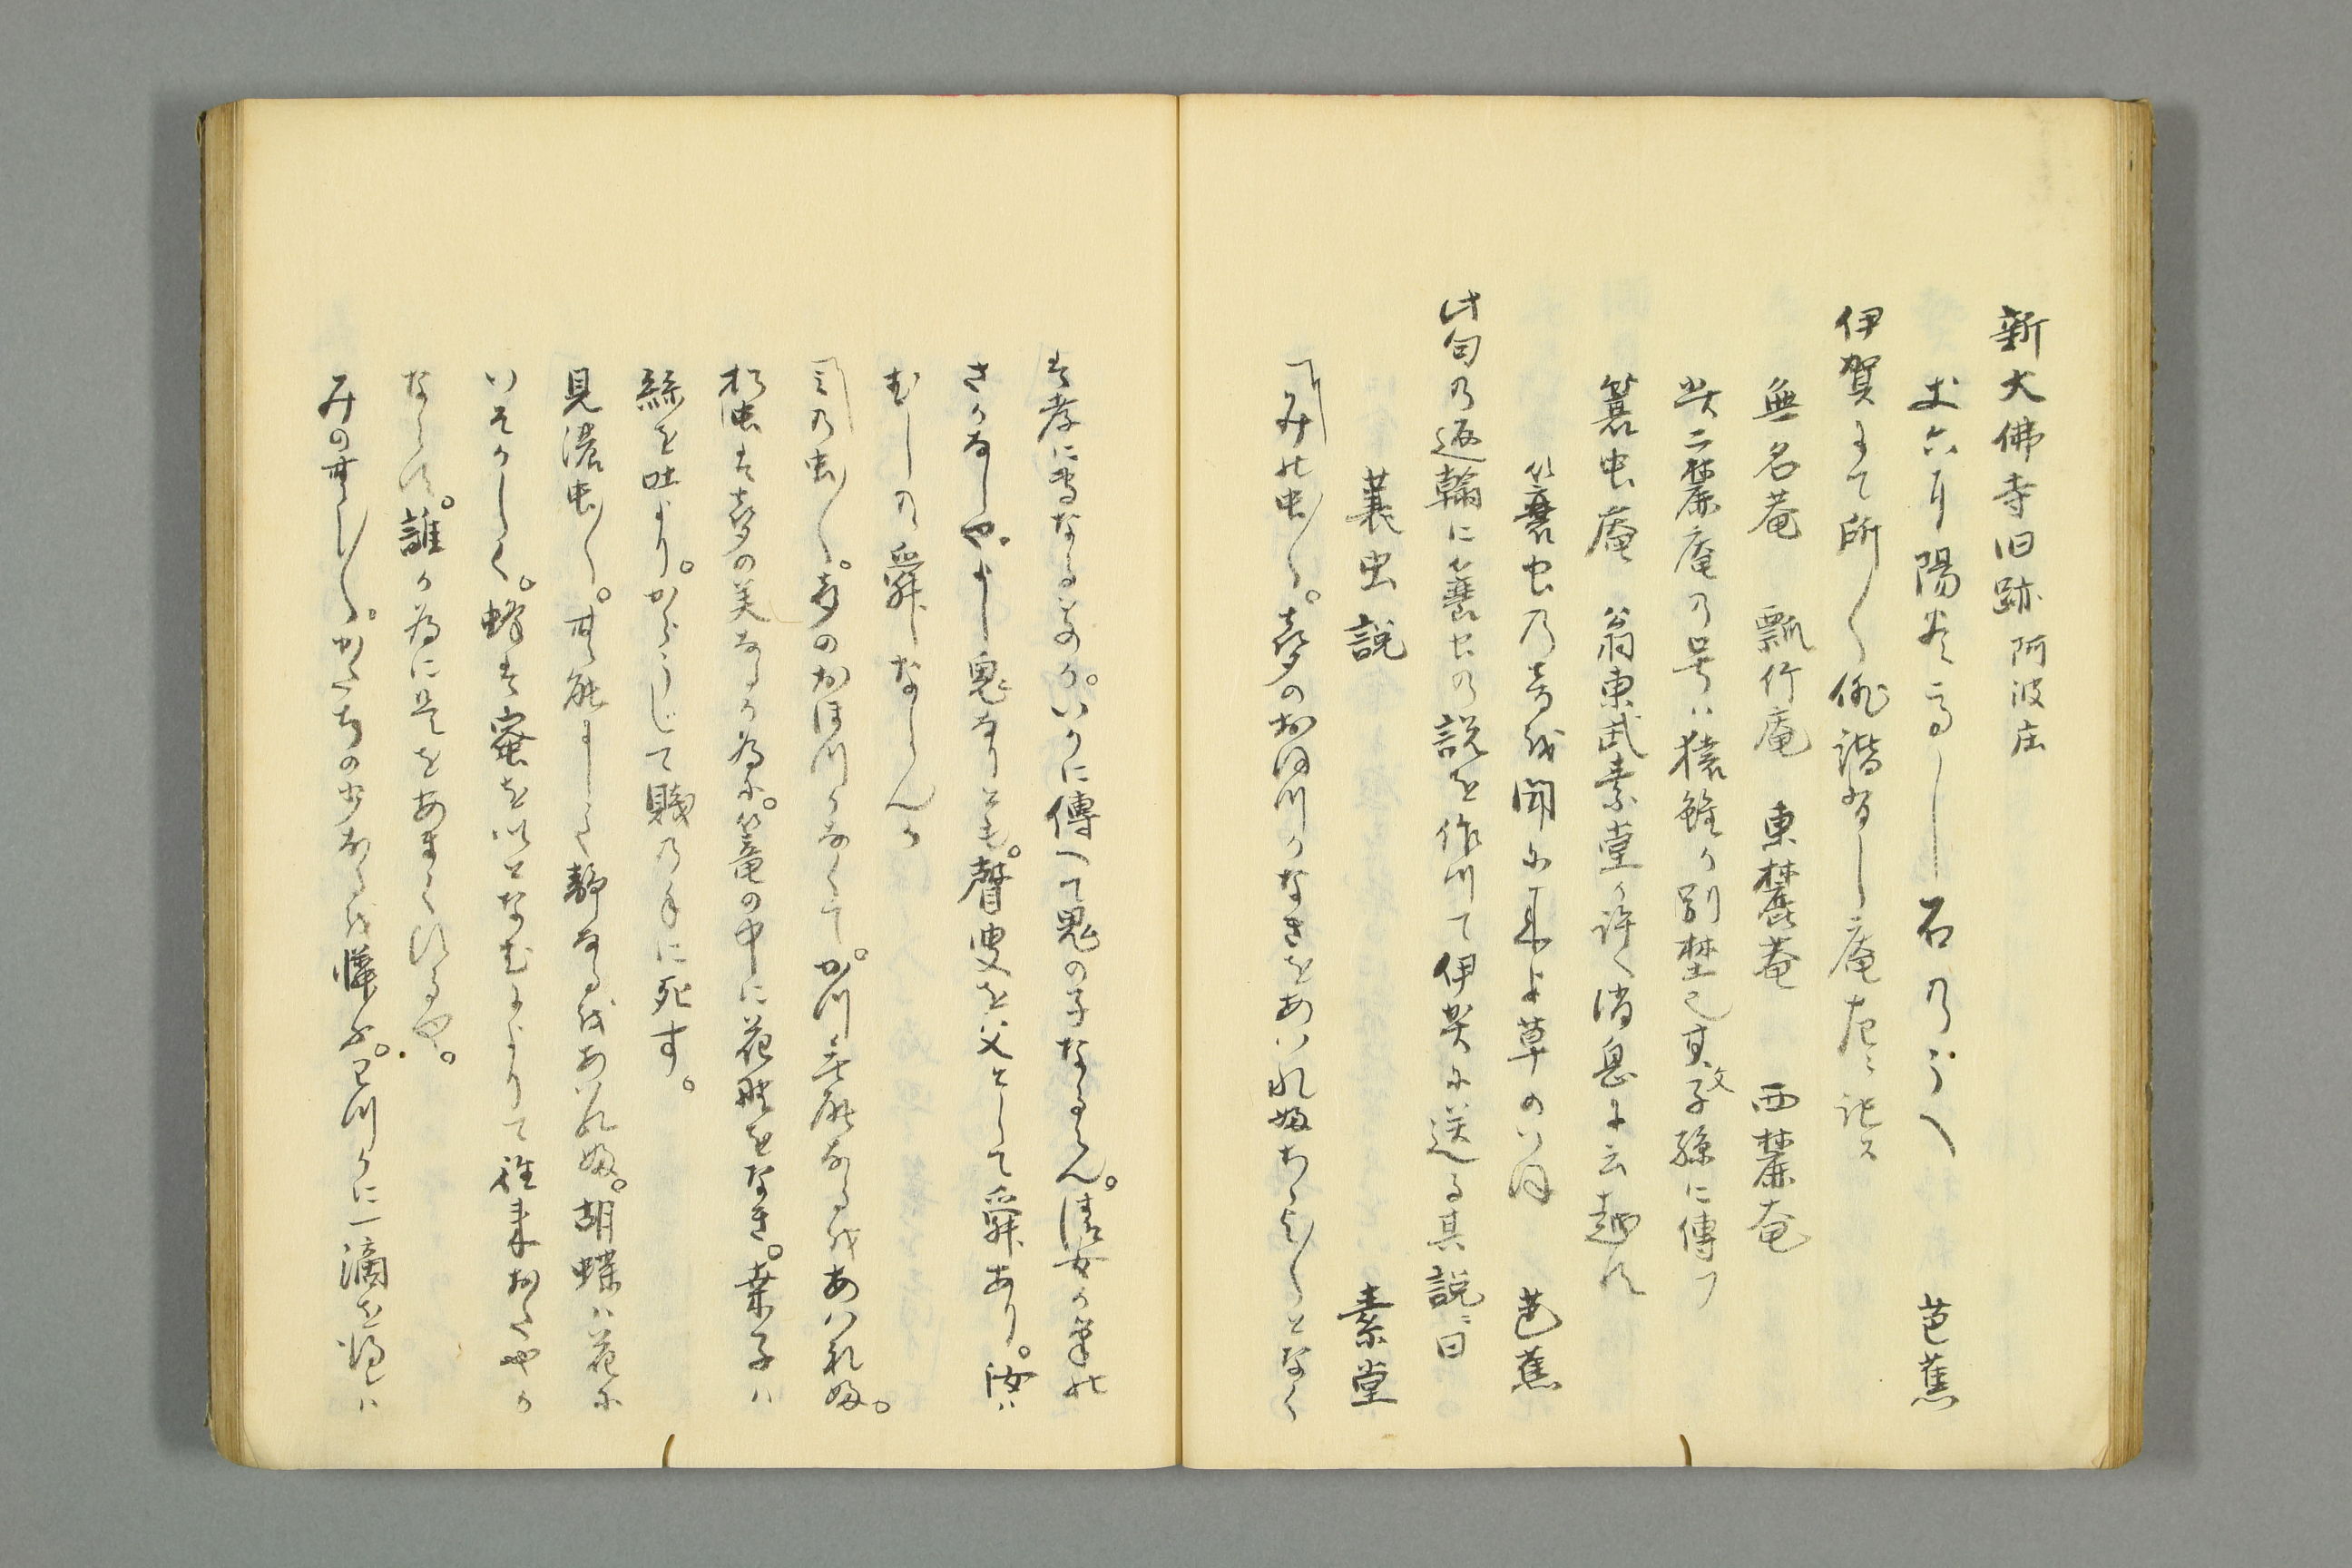 新大佛寺旧跡 阿波庄
丈六に陽炎高し石のうへ 芭蕉
伊賀にて所〱俳諧有し庵左ニ記ス
無名菴 瓢竹庵 東麓菴 西麓菴
此二麓庵の号ハ猿雖か別埜也其孜子孫に傳フ
簑虫庵 翁東武素堂か許へ消息に云越れ
簔虫の音を聞に来よ草のいほ 芭蕉
此句の返翰に簔虫の説を作りて伊賀に送る其説ニ曰
蓑虫説 素堂
みの虫〱。声のおほつかなきをあハれふちゝよ〱となく
は孝に専なるものか。いかに傳へて鬼の子なるらん。清女か筆の
さかなしや。よし鬼なりとも。瞽叟を父として舜あり。汝ハ
むしの舜ならんか
みの虫〱。声のおほつかなくて。かつ無能なるをあハれふ。
松虫は声の美なるか為に。篭の中に花野をなき。桑子ハ
絲を吐より。からうじて賤の手に死す。
見濃虫〱。無能にして静なるをあハれふ。胡蝶ハ花に
いそかしく。蜂は蜜をいとなむによりて往来おたやか
ならす。誰か為に是をあまくするや。
みの無し〱。かたちの少なるを憐ふ。わつかに一滴を得レハ